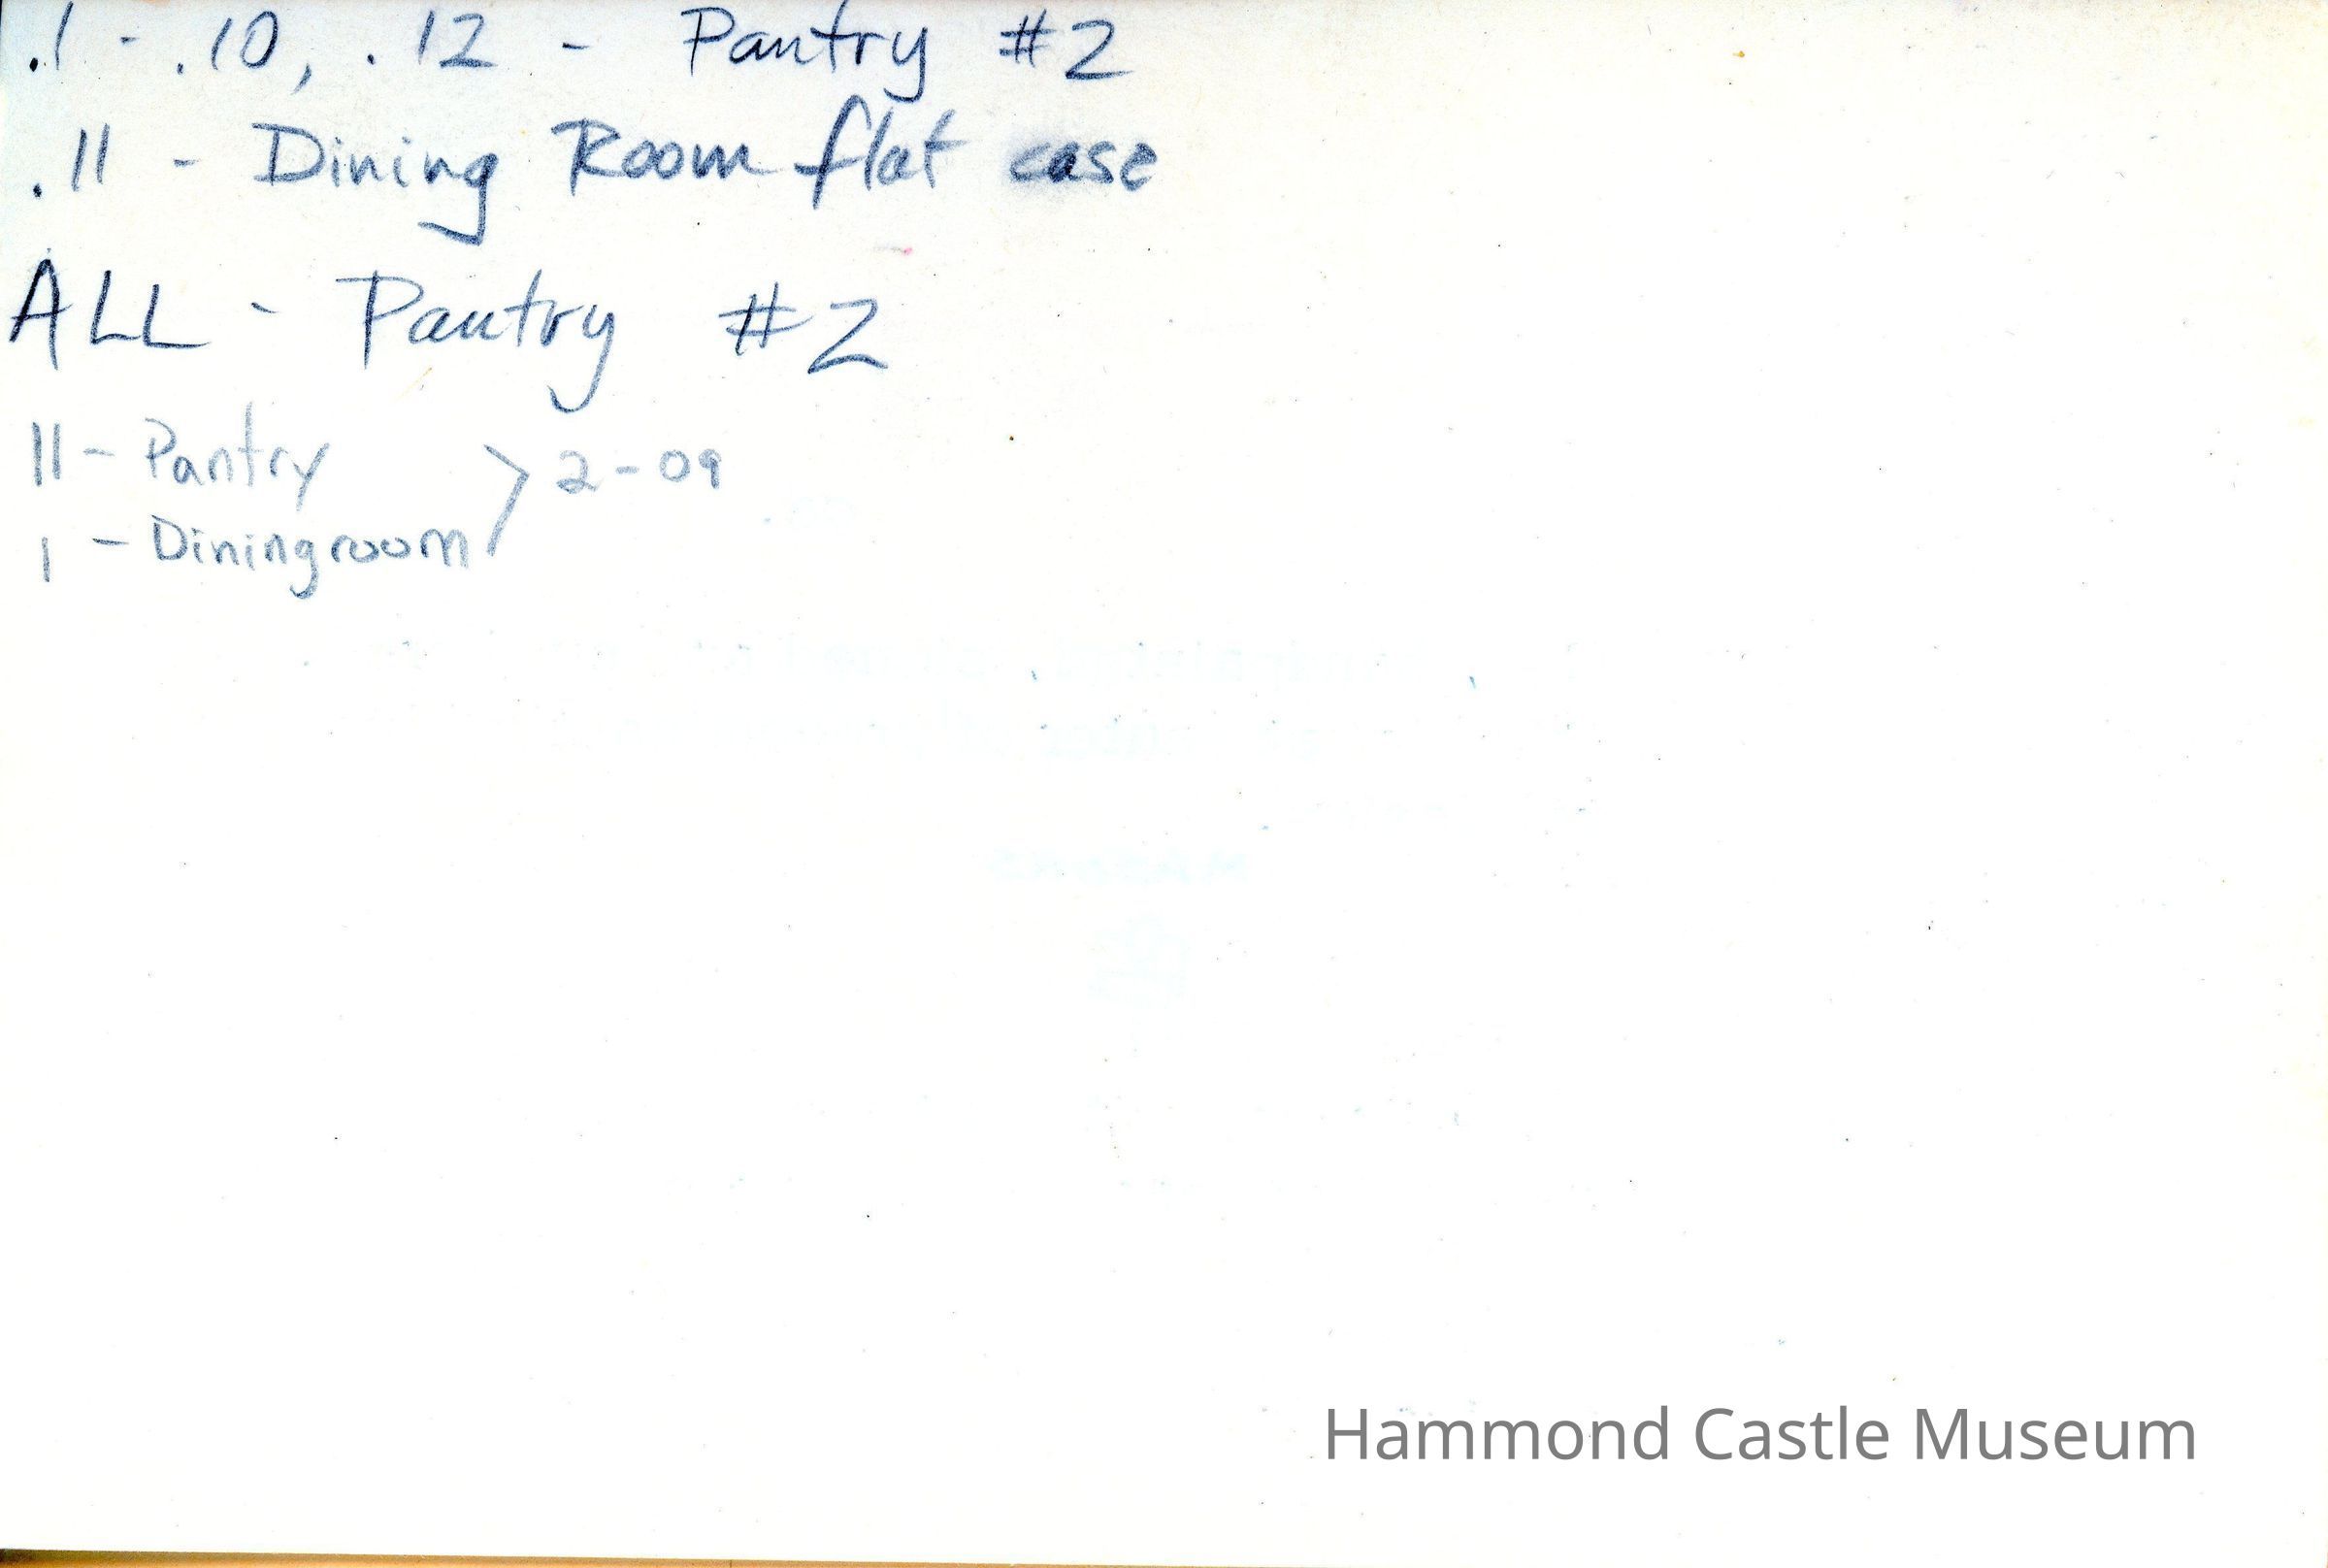 .1 - .10, .12 - Pantry #2
.11 - Dining Room flat case
ALL - Pantry #2
11 - Pantry > 2-09
1 - Diningroom
Hammond Castle Museum